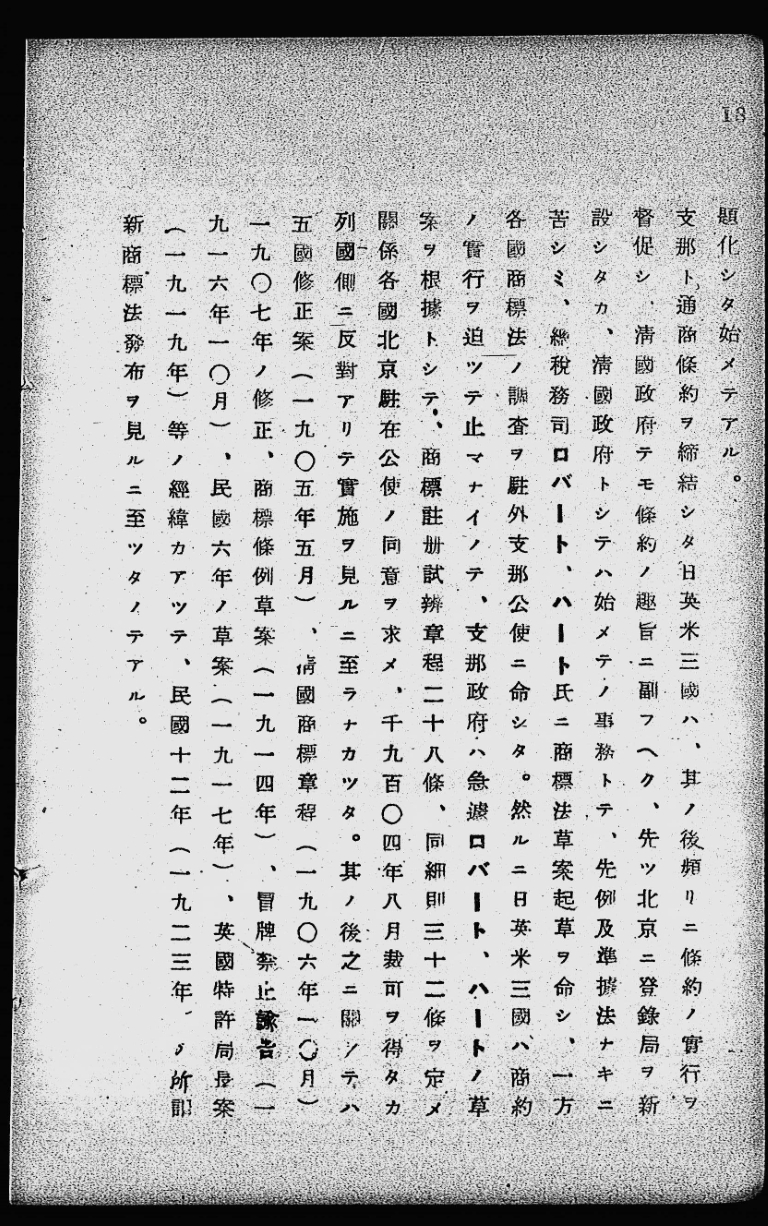 18
題化シタ始メテアル。
支那ト通商條約ヲ締結シタ日英米三國ハ、其ノ後頻リニ條約ノ實行ヲ
督促シ、淸國政府テモ條約ノ趣旨ニ副フヘク、先ツ北京ニ登錄局ヲ新
設シタカ、淸國政府トシテハ始メテノ事務トテ、先例及準據法ナキニ
苦シミ、總稅務司ロバート、ハート氏ニ商標法草案起草ヲ命シ、一方
各國商標法ノ調査ヲ駐外支那公使ニ命シタ。然ルニ日英米三國ハ商約
ノ實行ヲ迫ツテ止マナイノテ、支那政府ハ急遽ロバート、ハートノ草
案ヲ根據トシテ、商標註册試辨章程二十八條、同細則三十二條ヲ定メ
關係各國北京駐在公使ノ同意ヲ求メ、千九百〇四年八月裁可ヲ得タカ
列國側ニ反對アリテ實施ヲ見ルニ至ラナカツタ。其ノ後之ニ關シテハ
五國修正案（一九〇五年五月）、淸國商標章程（一九〇六年一〇月）
一九〇七年ノ修正、商標條例草案（一九一四年）、冒牌禁止諭吿（一
九一六年一〇月）、民國六年ノ草案（一九一七年）、英國特許局長案
（一九一九年）等ノ經緯カアツテ、民國十二年（一九二三年 所謂
新商標法發布ヲ見ルニ至ツタノテアル。